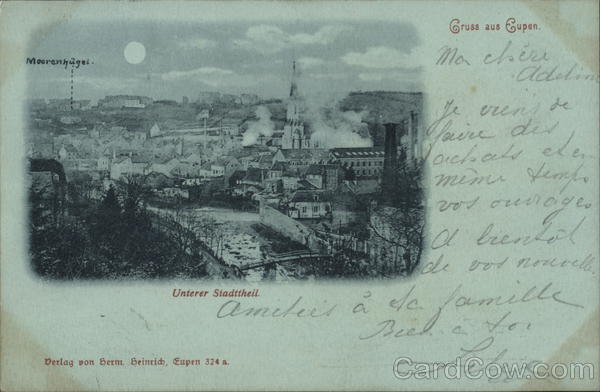 Gruss aus Eupen.
Moorenhügel.
Ma chère
Adeline
Je viens de
faire des
achats et en
même temps
vos ouvrages
A bientôt
de vos nouvelles
Unterer Stadttheil.
Amitiés à ta famille
Bien à toi
Verlag von Herm. Heinrich, Eupen 324 a.
CardCow.com